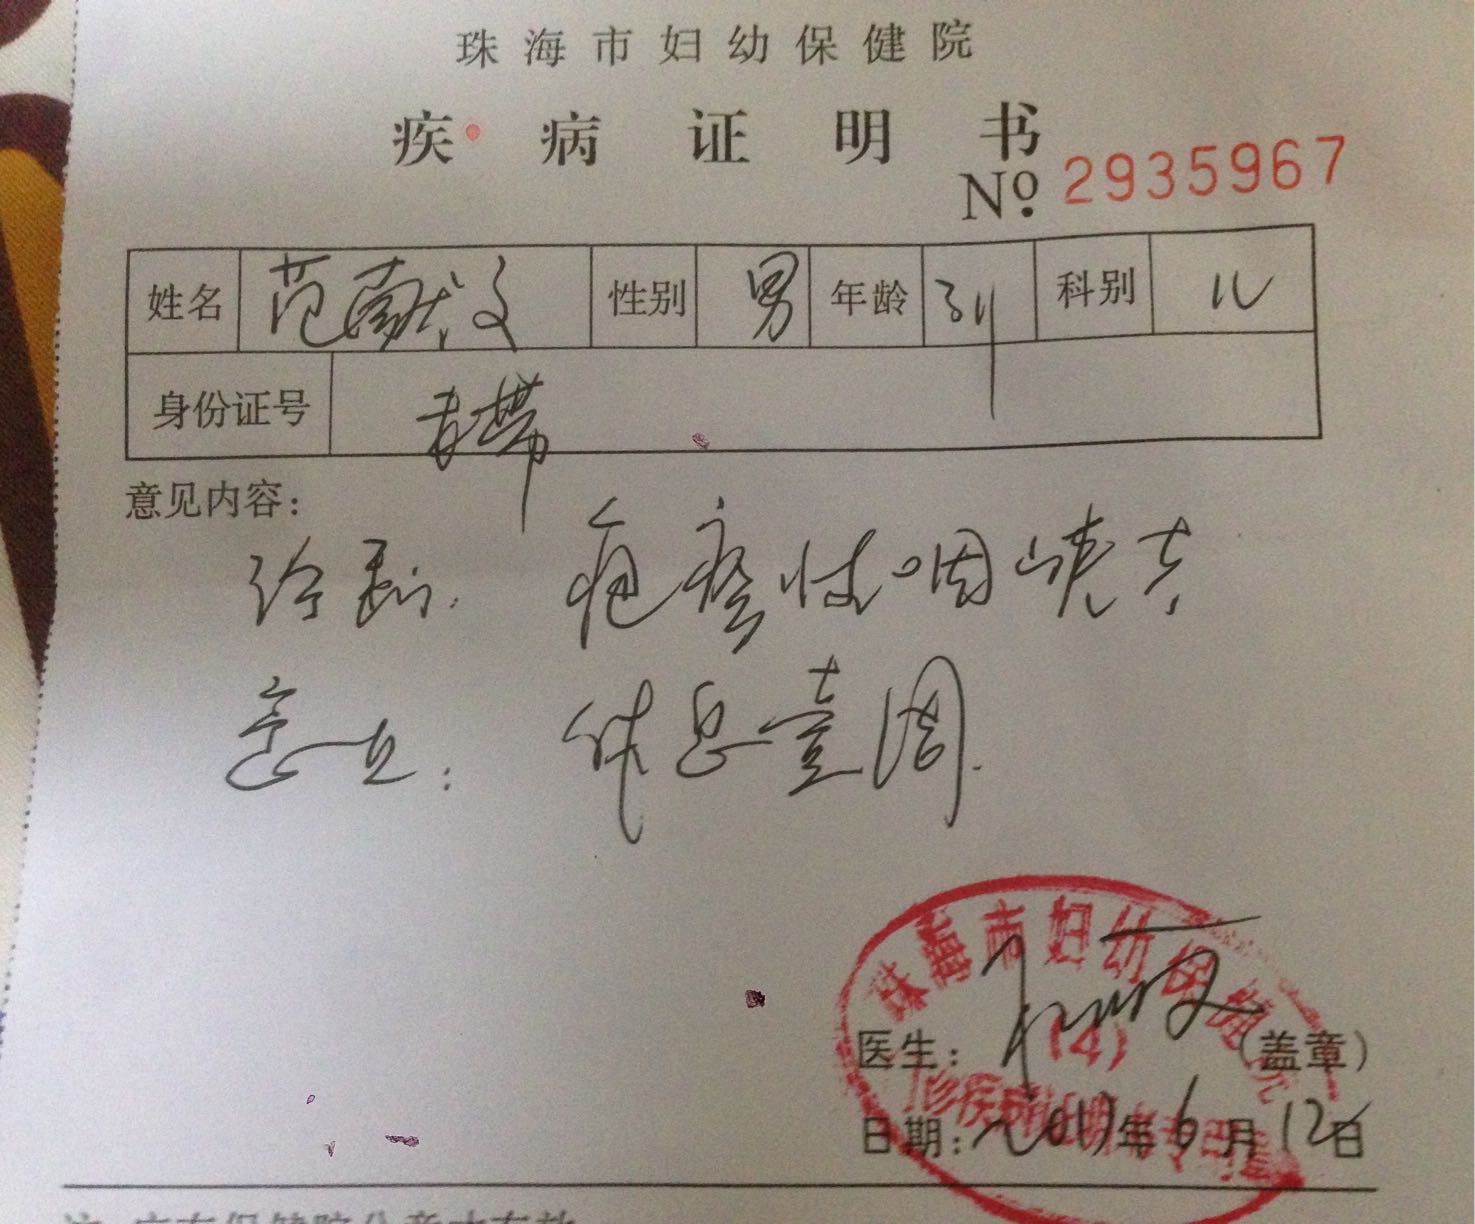 珠海市妇幼保健院
疾病证明书
No. 2935967
姓名 范献文 性别 男 年龄 3岁 科别 儿
身份证号 未带
意见内容：
诊断: 疱疹性咽峡炎
意见: 休息壹周.
珠海市妇幼保健院
(4)
医生: (盖章)
日期: 2017年6月12日